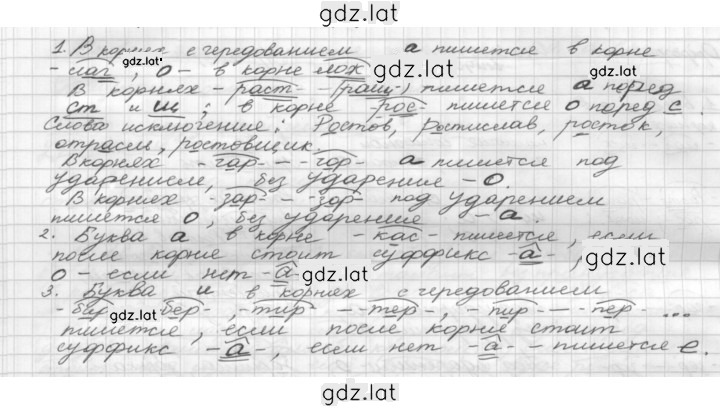 gdz.lat
1. В корнях с чередованием а пишется в корне
gdz.lat
-лаг, о - в корне лож
В корнях -раст- -(ращ) пишется а перед
ст и щ; в корне -рос- пишется о перед с.
Слова исключения: Ростов, Ростислав, росток,
отрасль, ростовщик.
В корнях -гар- -- -гор- а пишется под
ударением, без ударения - о.
В корнях -зар- -- -зор- под ударением
пишется о, без ударение - а.
2. Буква а в корне -кас- пишется, если
после корня стоит суффикс -а-,
gdz.lat
о - если нет -а-
gdz.lat
3. Буква и в корнях с чередованием
-би -бер-, -тир- -- -тер-, -пир- -- -пер- ...
gdz.lat
пишется, если после корня стоит
суффикс -а-, если нет -а- - пишется е.
gdz.lat